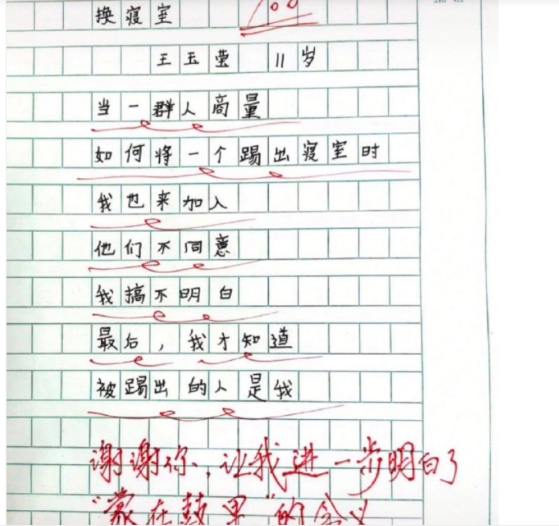 换寝室
100
王玉莹 11岁
当一群人商量
如何将一个踢出寝室时
我也来加入
他们不同意
我搞不明白
最后，我才知道
被踢出的人是我
谢谢你，让我进一步明白了
“蒙在鼓里”的含义